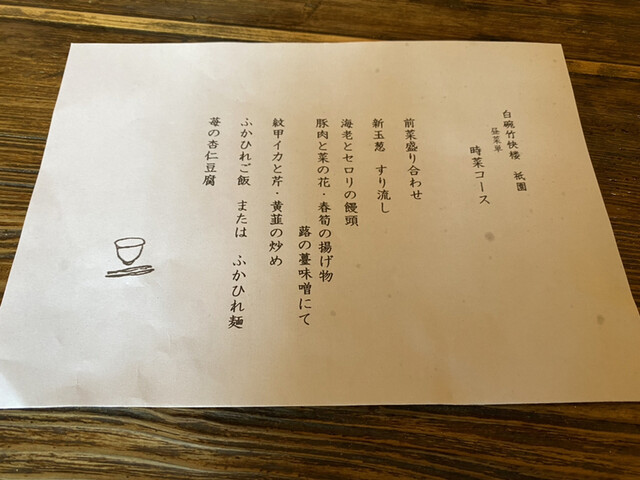 白碗竹快楼　祇園
昼菜単
時菜コース
前菜盛り合わせ
新玉葱　すり流し
海老とセロリの饅頭
豚肉と菜の花・春筍の揚げ物
蕗の薹味噌にて
紋甲イカと芹・黄韮の炒め
ふかひれご飯　または　ふかひれ麺
苺の杏仁豆腐